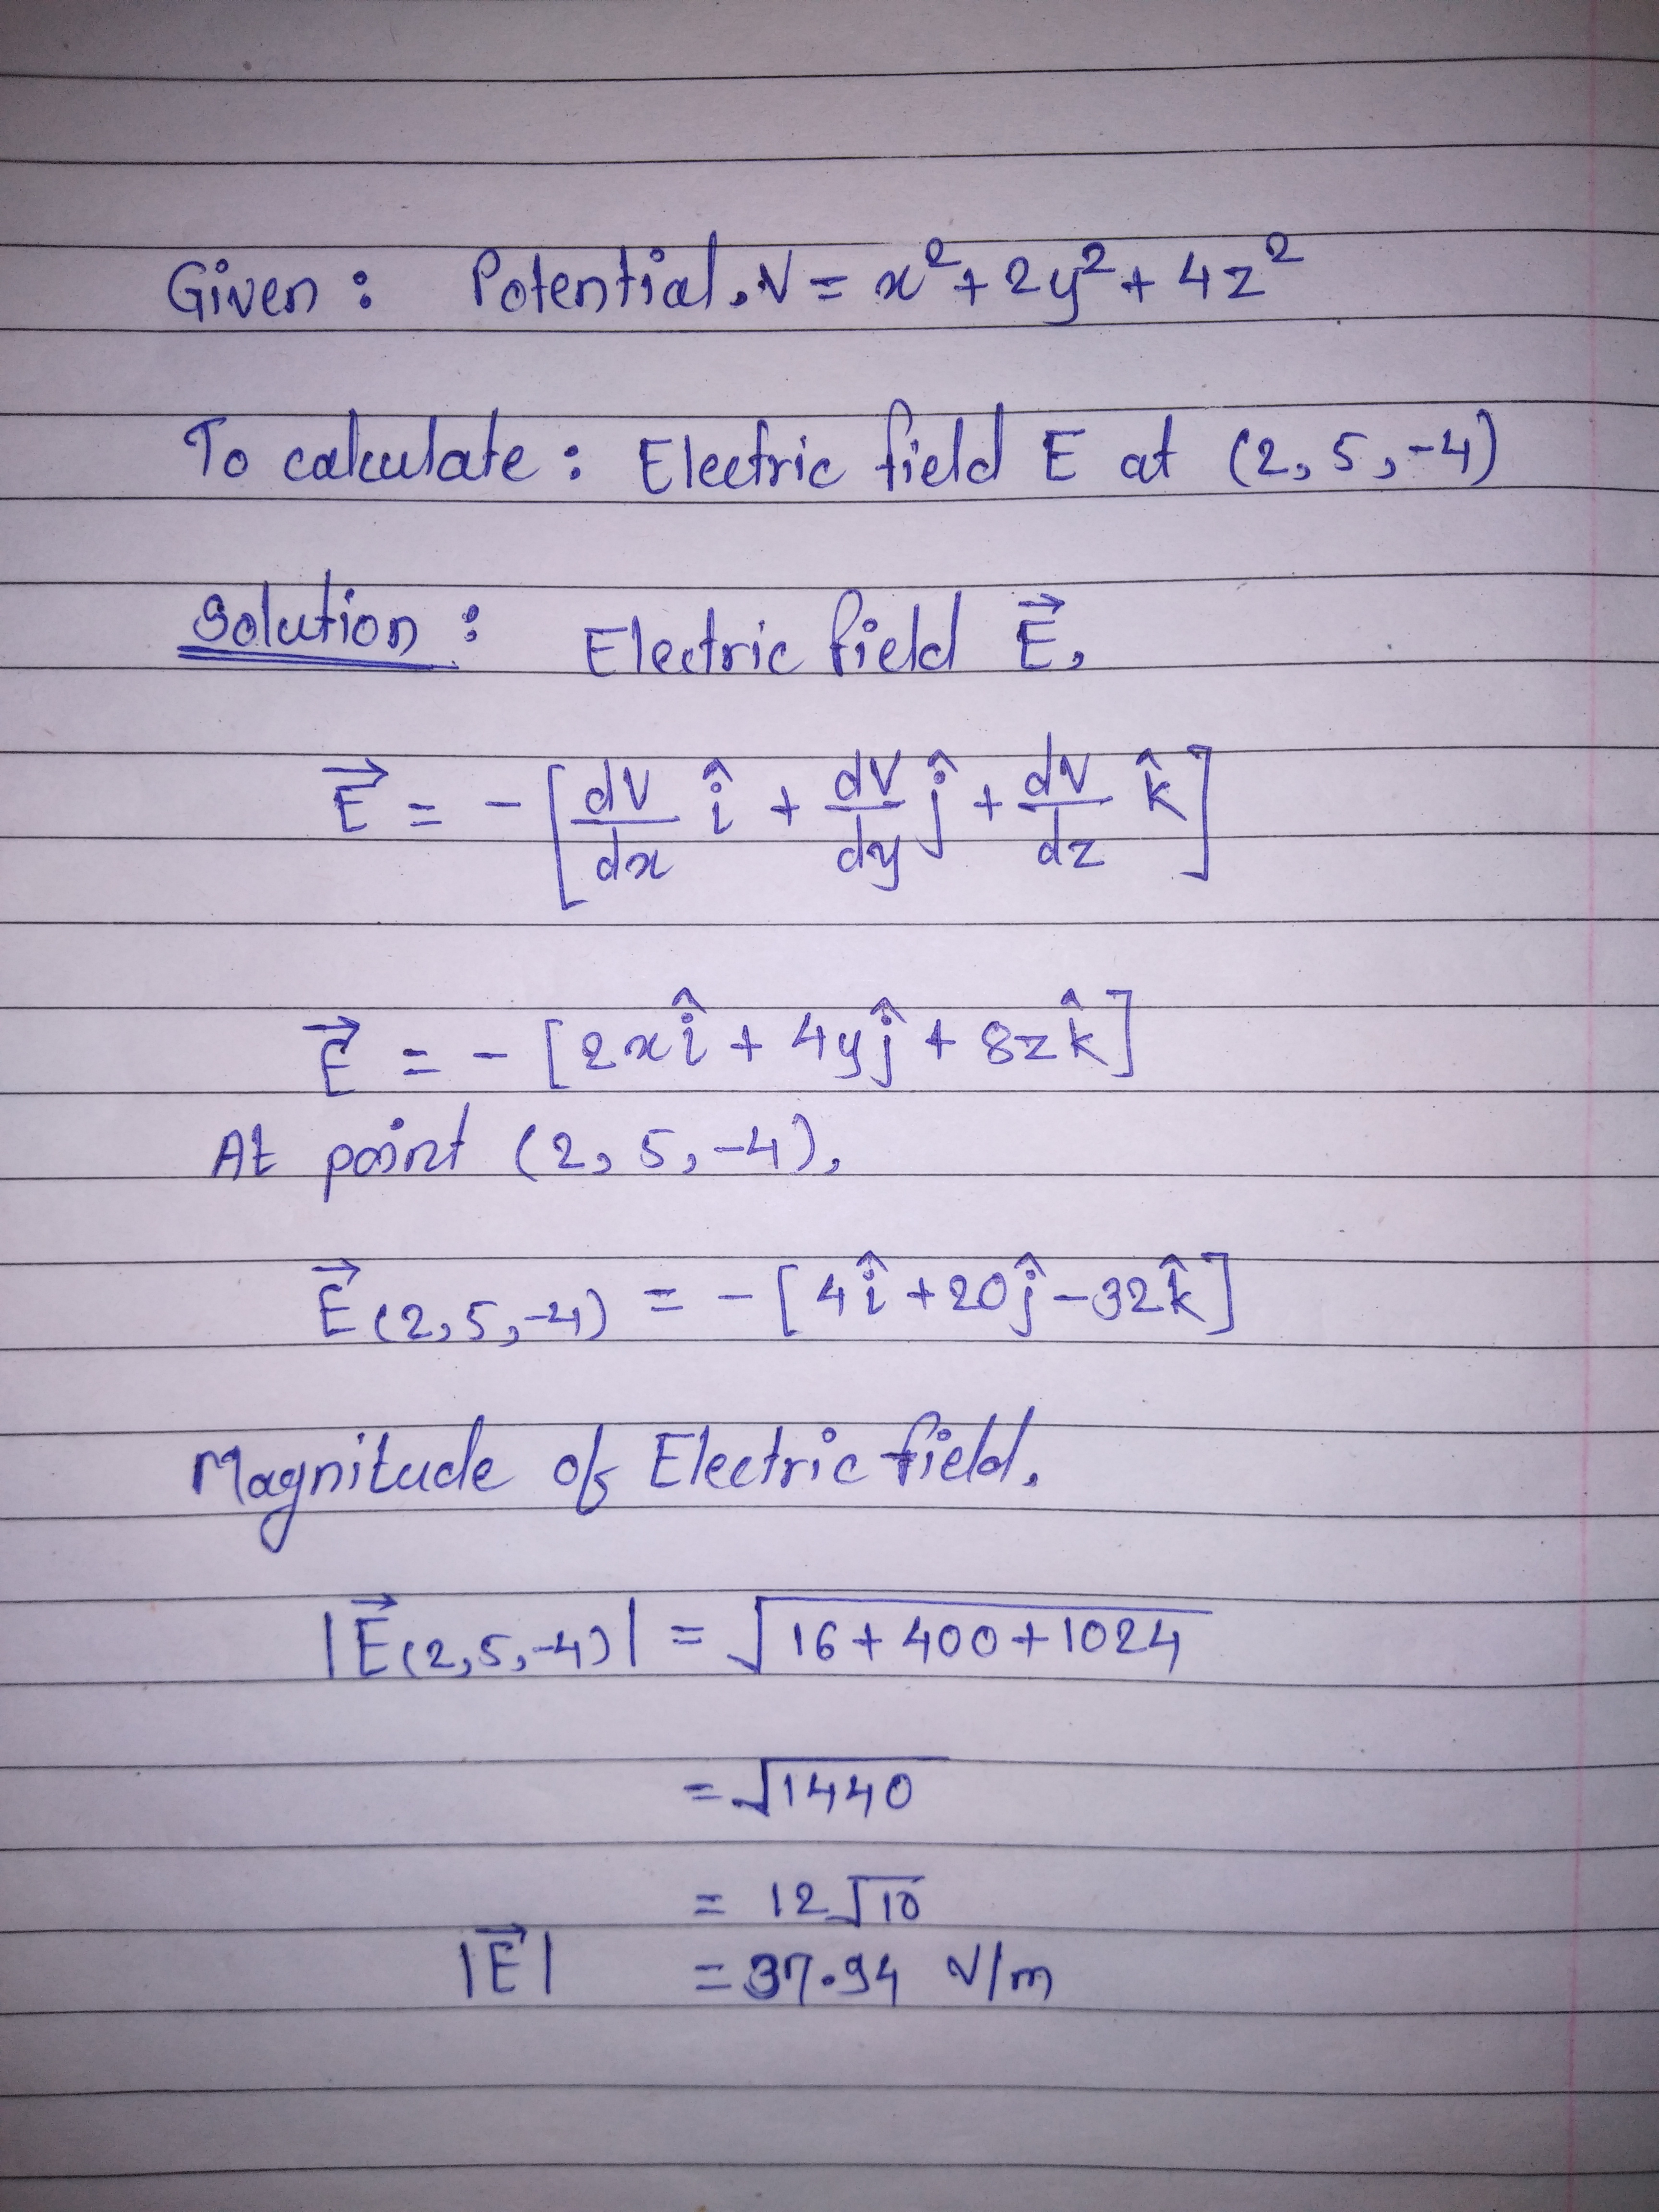 Given : Potential, V = x² + 2y² + 4z²
To calculate : Electric field E at (2, 5, -4)
Solution : Electric field E⃗,
E⃗ = - [dV/dx î + dV/dy ĵ + dV/dz k̂]
E⃗ = - [2xî + 4yĵ + 8zk̂]
At point (2, 5, -4),
E⃗(2,5,-4) = - [4î + 20ĵ - 32k̂]
Magnitude of Electric field,
|E⃗(2,5,-4)| = √(16 + 400 + 1024)
= √1440
= 12√10
|E⃗| = 37.94 V/m